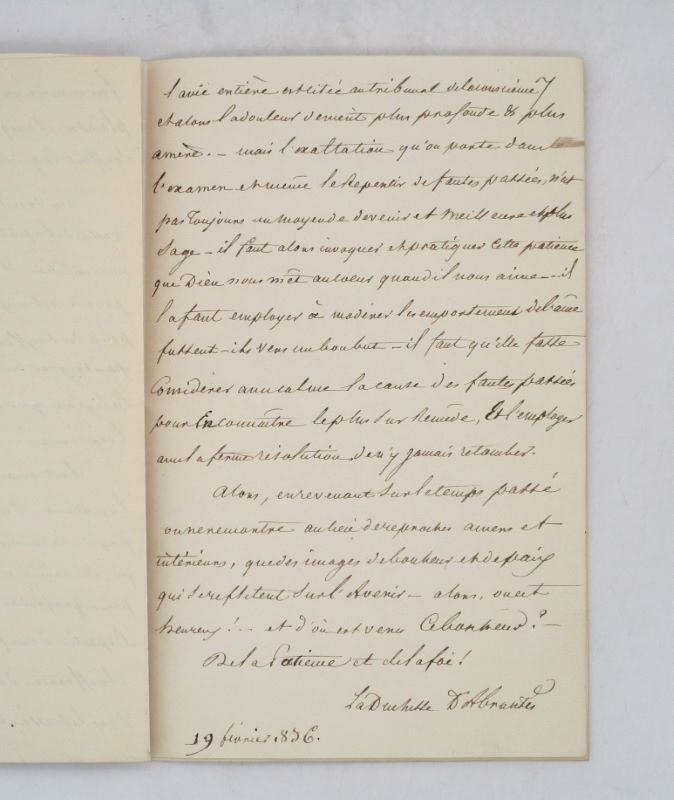 la vie entière est litée au tribunal de la conscience
et alors la douleur devient plus profonde & plus
amère. – mais l'exaltation qu'on porte dans
l'examen et même le Repentir de fautes passées, n'est
pas Toujours un moyen de devenir et meilleure et plus
Sage – il faut alors invoquer et pratiquer cette patience
que Dieu nous met au cœur quand il nous aime – il
la faut employer à modérer les emportements de l'âme
fussent-ils vers un bon but – il faut qu'elle fasse
Considérer avec calme la cause des fautes passées
pour En connaître le plus sur Remède, Et l'employer
avec la ferme résolution de n'y jamais retomber.
Alors, en revenant sur le temps passé
on ne rencontre au lieu de reproches amers et
intérieurs, que des images de bonheur et de paix
qui se reflètent sur l'Avenir – alors, on est
heureux !.. et d'où est venu Ce bonheur ? –
De la Patience et de la foi !
La Duchesse D'Abrantès
19 février 1836.